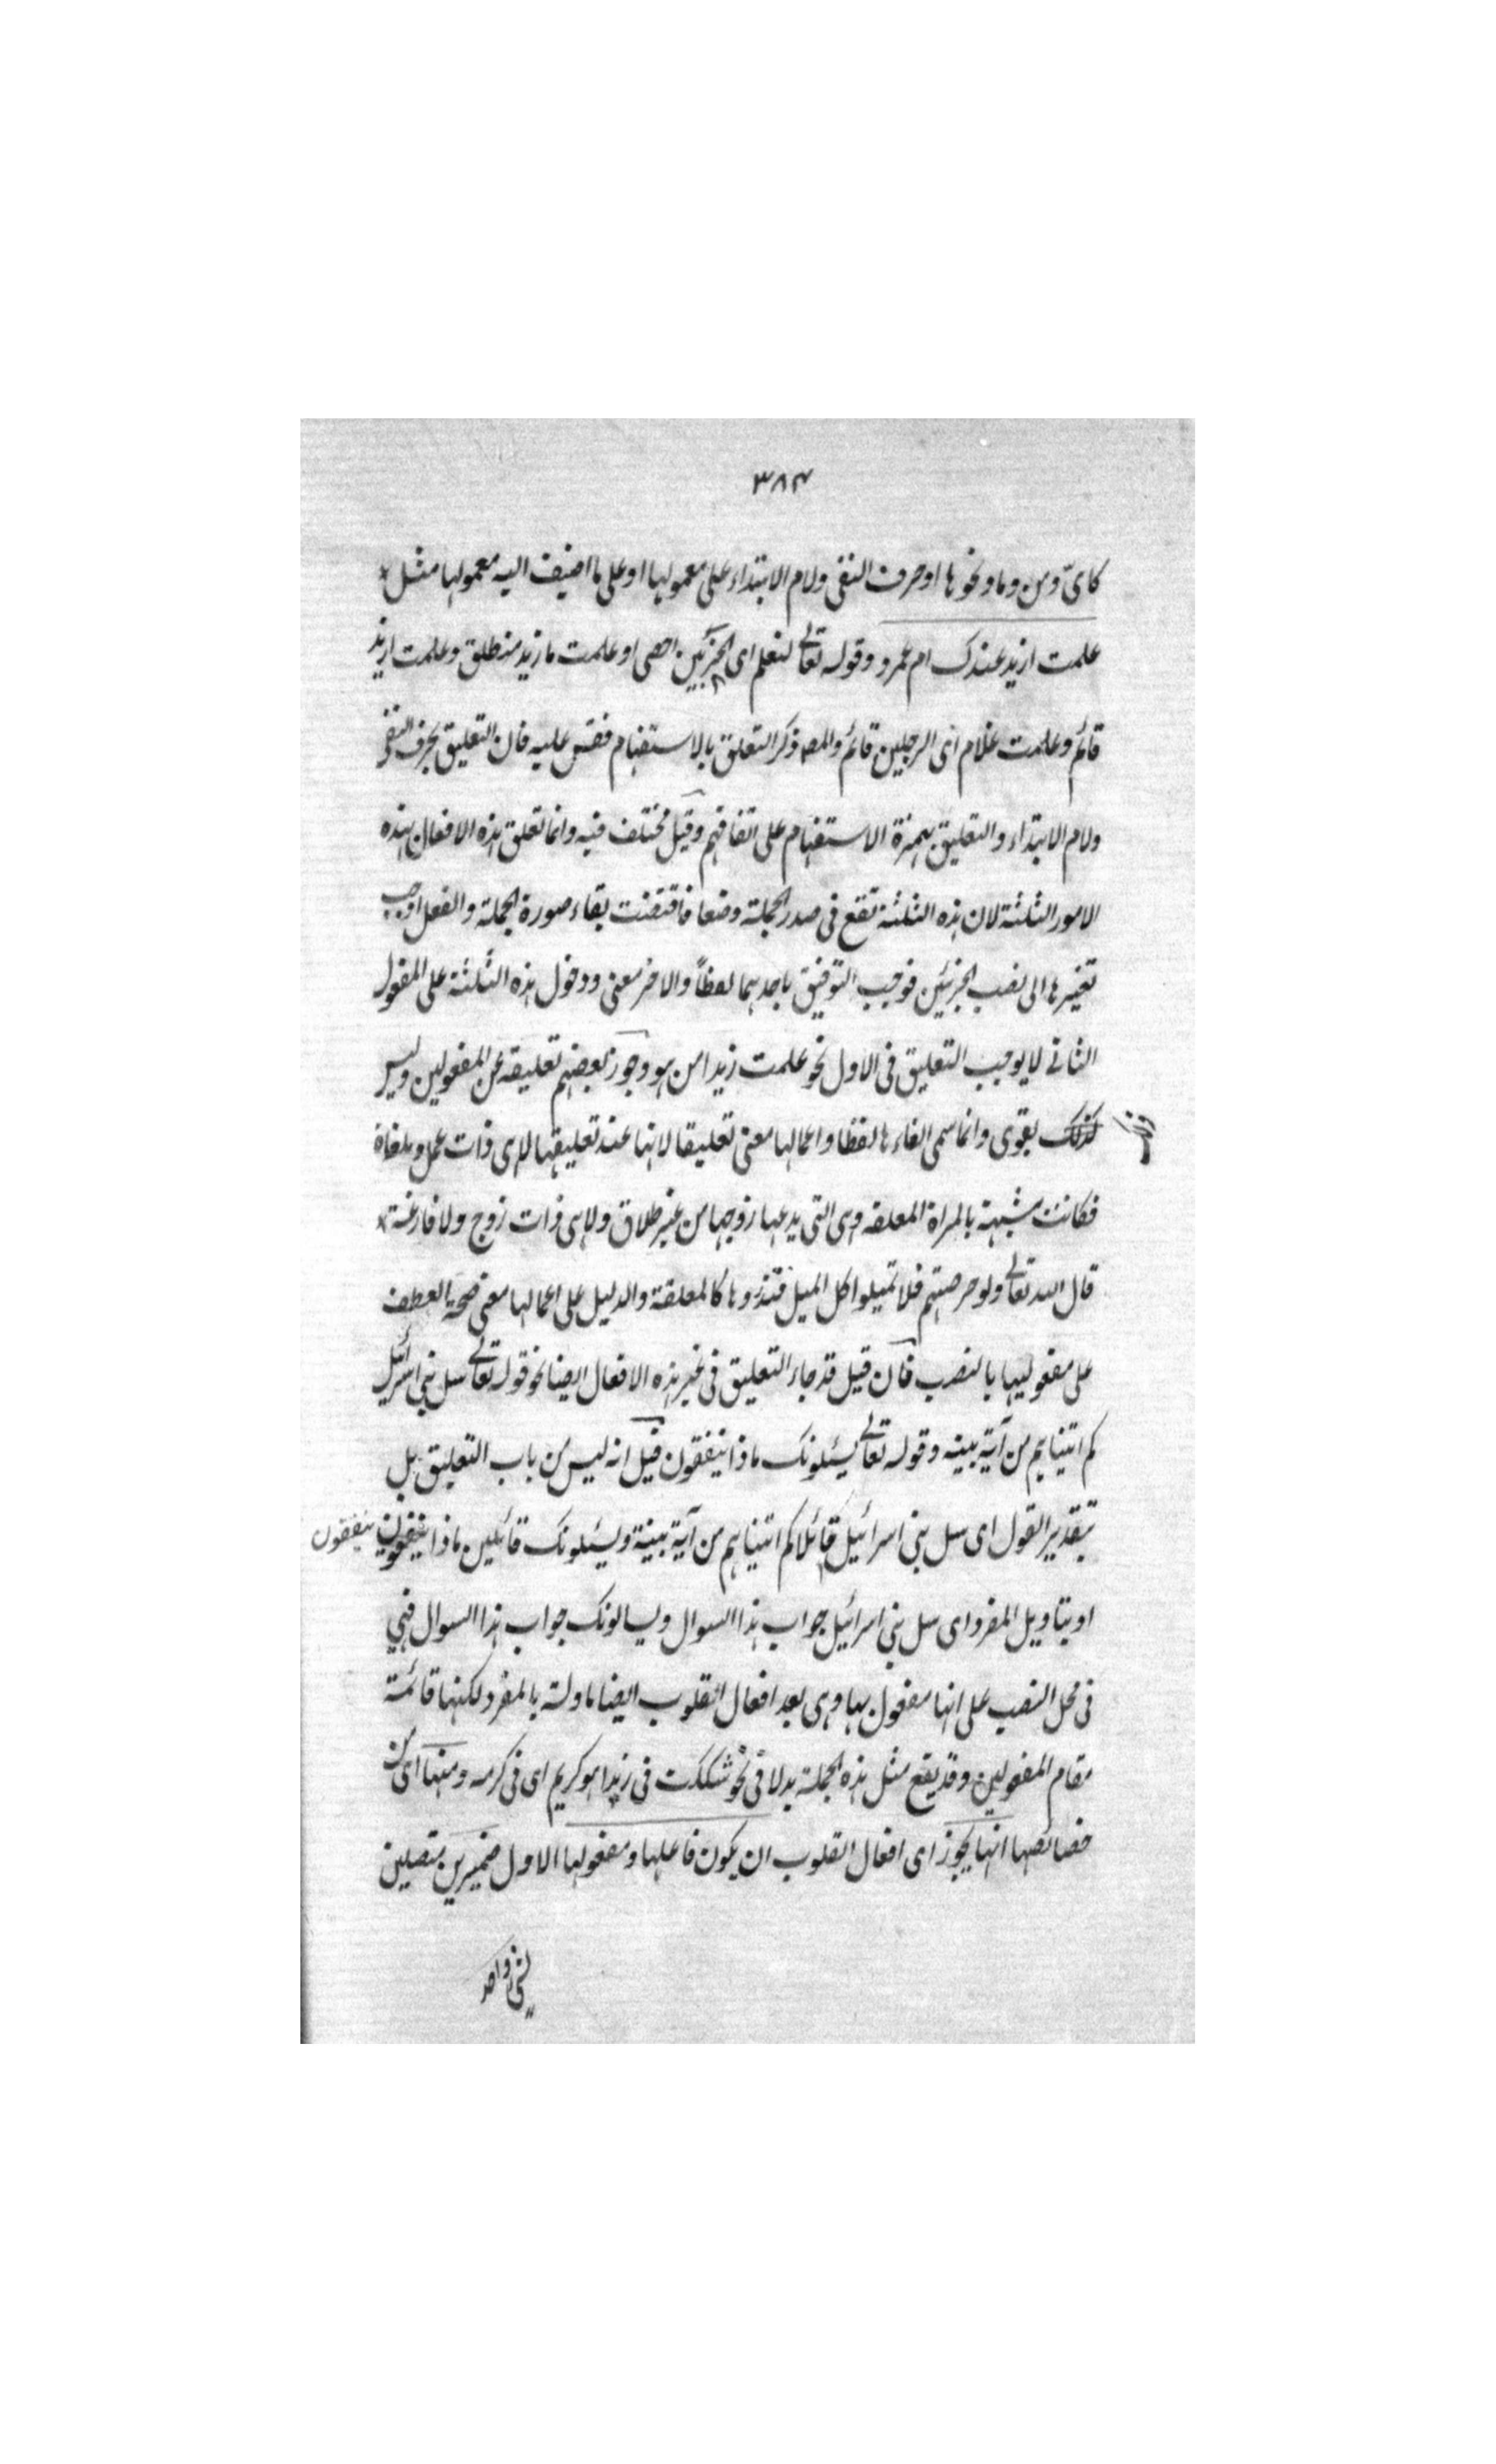 ٣٨٤
كاىّ ومن وما ونحوها او حرف النفى ولام الابتداء على معمولها او على ما اضيف اليه معمولها مثل
علمت ازيد عندك ام عمرو وقوله تعالے لنعلم اى الحزبين احصى او علمت ما زيد منطلق وعلمت ازيد
قائم وعلمت غلام اى الرجلين قائم والمص ذكر التعلق بالاستفهام فقس عليه فان التعليق بحرف النفى
ولام الابتداء والتعليق بهمزة الاستفهام على اتفاقهم وقيل مختلف فيه وانما تعلق هذه الافعال بهذه
الامور الثلثة لان هذه الثلثة تقع فى صدر الجملة وضعا فاقتضت بقاء صورة الجملة والفعل اوجب
تغييرها الى نصب الجزئين فوجب التوفيق باحدهما لفظاً والاخر معنى ودخول هذه الثلثة على المفعول
الثانے لا يوجب التعليق فى الاول نحو علمت زيدا من هو وجوز بعضهم تعليقه عن المفعولين وليس
كذلك بقوى وانما سمى الغاءها لفظا واعمالها معنى تعليقا لانها عند تعليقها لا هى ذات عمل وملغاة
فكانت مشبهة بالمراة المعلقه وهى التى يدعها زوجها من غير طلاق ولا هى ذات زوج ولا فارغة
قال الله تعالے ولو حرصتم فلا تميلوا كل الميل فتذروها كالمعلقة والدليل على اعمالها معنى صحة العطف
على مفعوليها بالنصب فان قيل قد جاء التعليق فى غير هذه الافعال ايضا نحو قوله تعالے سل بنى اسرائيل
كم اتيناهم من آية بينه وقوله تعالے يسئلونك ماذا ينفقون قيل انه ليس من باب التعليق بل
بتقدير القول اى سل بنى اسرائيل قائلا كم اتيناهم من آية بينة ويسئلونك قائلين ماذا ينفقون ينفقون
او بتاويل المفرد اى سل بنى اسرائيل جواب هذا السوال ويسالونك جواب هذا السوال فهي
فى محل النصب على انها مفعول بها وهى بعد افعال القلوب ايضا ماولة بالمفرد لكنها قائمة
مقام المفعولين وقد يقع مثل هذه الجملة بدلا فى نحو شككت فى زيد اهو كريم اى فى كرمه ومنها اى من
خصائصها انها يجوز اى افعال القلوب ان يكون فاعلها ومفعولها الاول ضميرين متصلين
لشئ واحد